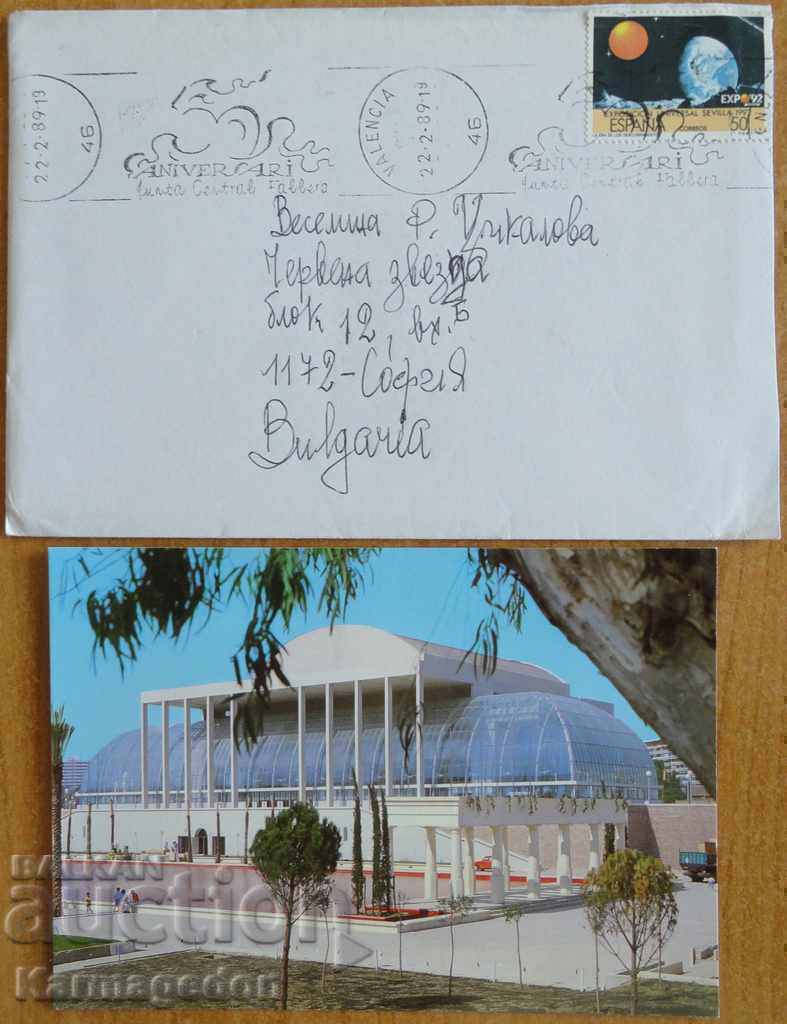 22-2-89-19
46
ANIVERSARI
Junta Central Fallera
VALENCIA
22-2-89-19
46
ANIVERSARI
Junta Central Fallera
EXPO 92
EXPOSICION UNIVERSAL SEVILLA 1992
ESPAÑA CORREOS 50
Веселица Ф. Чукалова
Червена звезда
блок 12, вх. Б
1172-София
Bulgaria
BALKAN
auction
Karmagedon